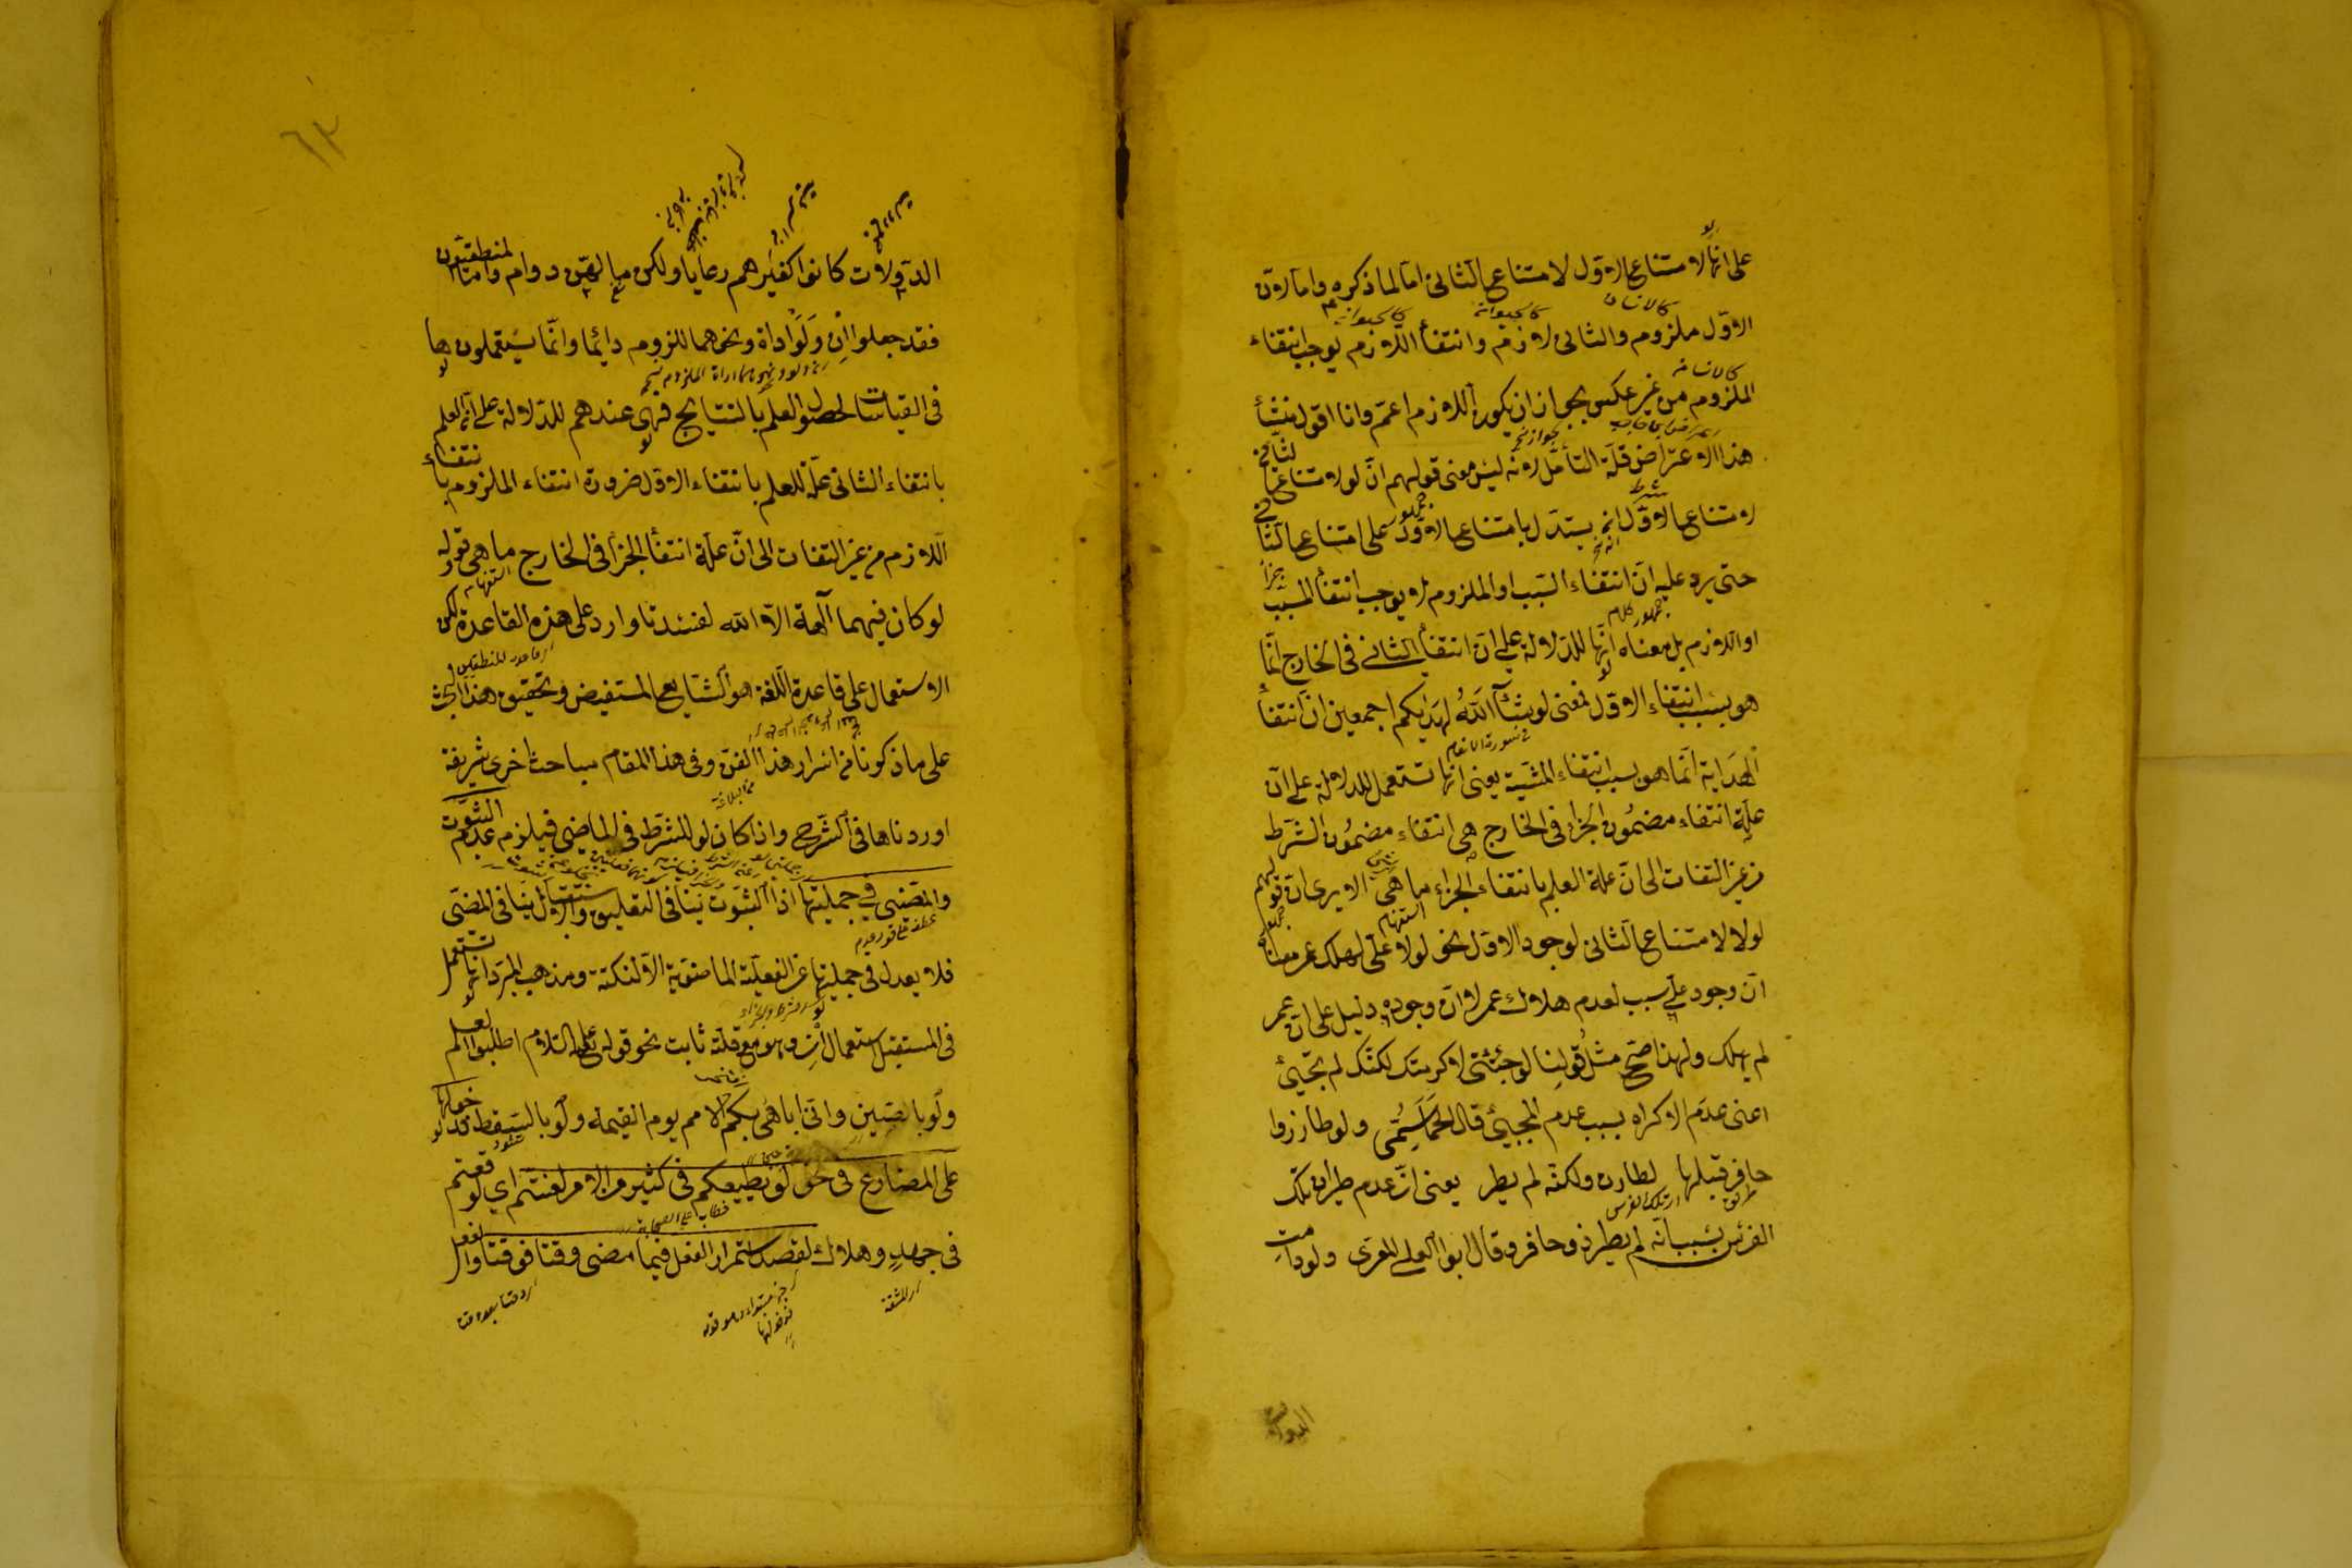 على انها لامتناع الاول لامتناع الثانى اما لما ذكره واما لان
الاول ملزوم والثانى لازم وانتفاء اللازم يوجب انتفاء
الملزوم من غير عكس بجواز ان يكون اللازم اعم وانا اقول منشأ
هذا الاعتراض قلة التأمل لانه ليس معنى قولهم ان لو لامتناع الثانى
لامتناع الاول انه يستدل بامتناع الاول على امتناع الثانى
حتى يرد عليه ان انتفاء السبب او الملزوم لا يوجب انتفاء المسبب
او اللازم بل معناه انها للدلالة على ان انتفاء الثانى فى الخارج انما
هو بسبب انتفاء الاول فمعنى لو شآء الله لهديكم اجمعين ان انتفاء
الهداية انما هو بسبب انتفاء المشية يعنى انها تستعمل للدلالة على ان
علة انتفاء مضمون الجزاء فى الخارج هى انتفاء مضمون الشرط
من غير التفات الى ان علة العلم بانتفاء الجزاء ما هى الا يرى ان قولهم
لولا لامتناع الثانى لوجود الاول نحو لولا على لهلك عمر معناه
ان وجود على سبب لعدم هلاك عمر لا ان وجوده دليل على ان عمر
لم يهلك ولهذا صح مثل قولنا لو جئتنى لاكرمتك لكنك لم تجئ
اعنى عدم الاكرام بسبب عدم المجيئ قال الحماسى ولو طار ذوا
حافر قبلها لطارت ولكنه لم يطر يعنى ان عدم طيران تلك
الفرس بسبب انه لم يطر ذو حافر وقال ابو العلى المعرى ولو دامت
الدولات
الدولات كانوا كغيرهم رعايا ولكن ما لهن دوام واما المنطقيون
فقد جعلوا ان ولو اداة ونحوهما للزوم دائما وانما يستعملونها
فى القياسات لحصول العلم بالنتايج فهى عندهم للدلالة على ان العلم
بانتفاء الثانى علة للعلم بانتفاء الاول ضرورة انتفاء الملزوم بانتفاء
اللازم من غير التفات الى ان علة انتفاء الجزاء فى الخارج ما هى قوله
لو كان فيهما آلهة الا الله لفسدتا وارد على هذه القاعدة لكن
الاستعمال على قاعدة اللغة هو الشايع المستفيض وتحقيق هذا البحث
على ما ذكرنا من اسرار هذا الفن وفى هذا المقام مباحث اخرى شريفة
اوردناها فى الشرح واذا كان لو للشرط فى الماضى فيلزم عدم الثبوت
والمضى فى جملتيها اذ الثبوت ينافى التعليق والاستقبال ينافى المضى
فلا يعدل فى جملتيها عن الفعلية الماضوية الا لنكتة ومذهب المبرد انها تستعمل
فى المستقبل استعمال ان وهو مع قلته ثابت نحو قوله عليه السلام اطلبوا العلم
ولو بالصين وانى اباهى بكم الامم يوم القيمة ولو بالسقط فدخولها
على المضارع فى نحو لو يطيعكم فى كثير من الامر لعنتم اى لوقعتم
فى جهد وهلاك لقصد استمرار الفعل فيما مضى وقتا فوقتا والفعل